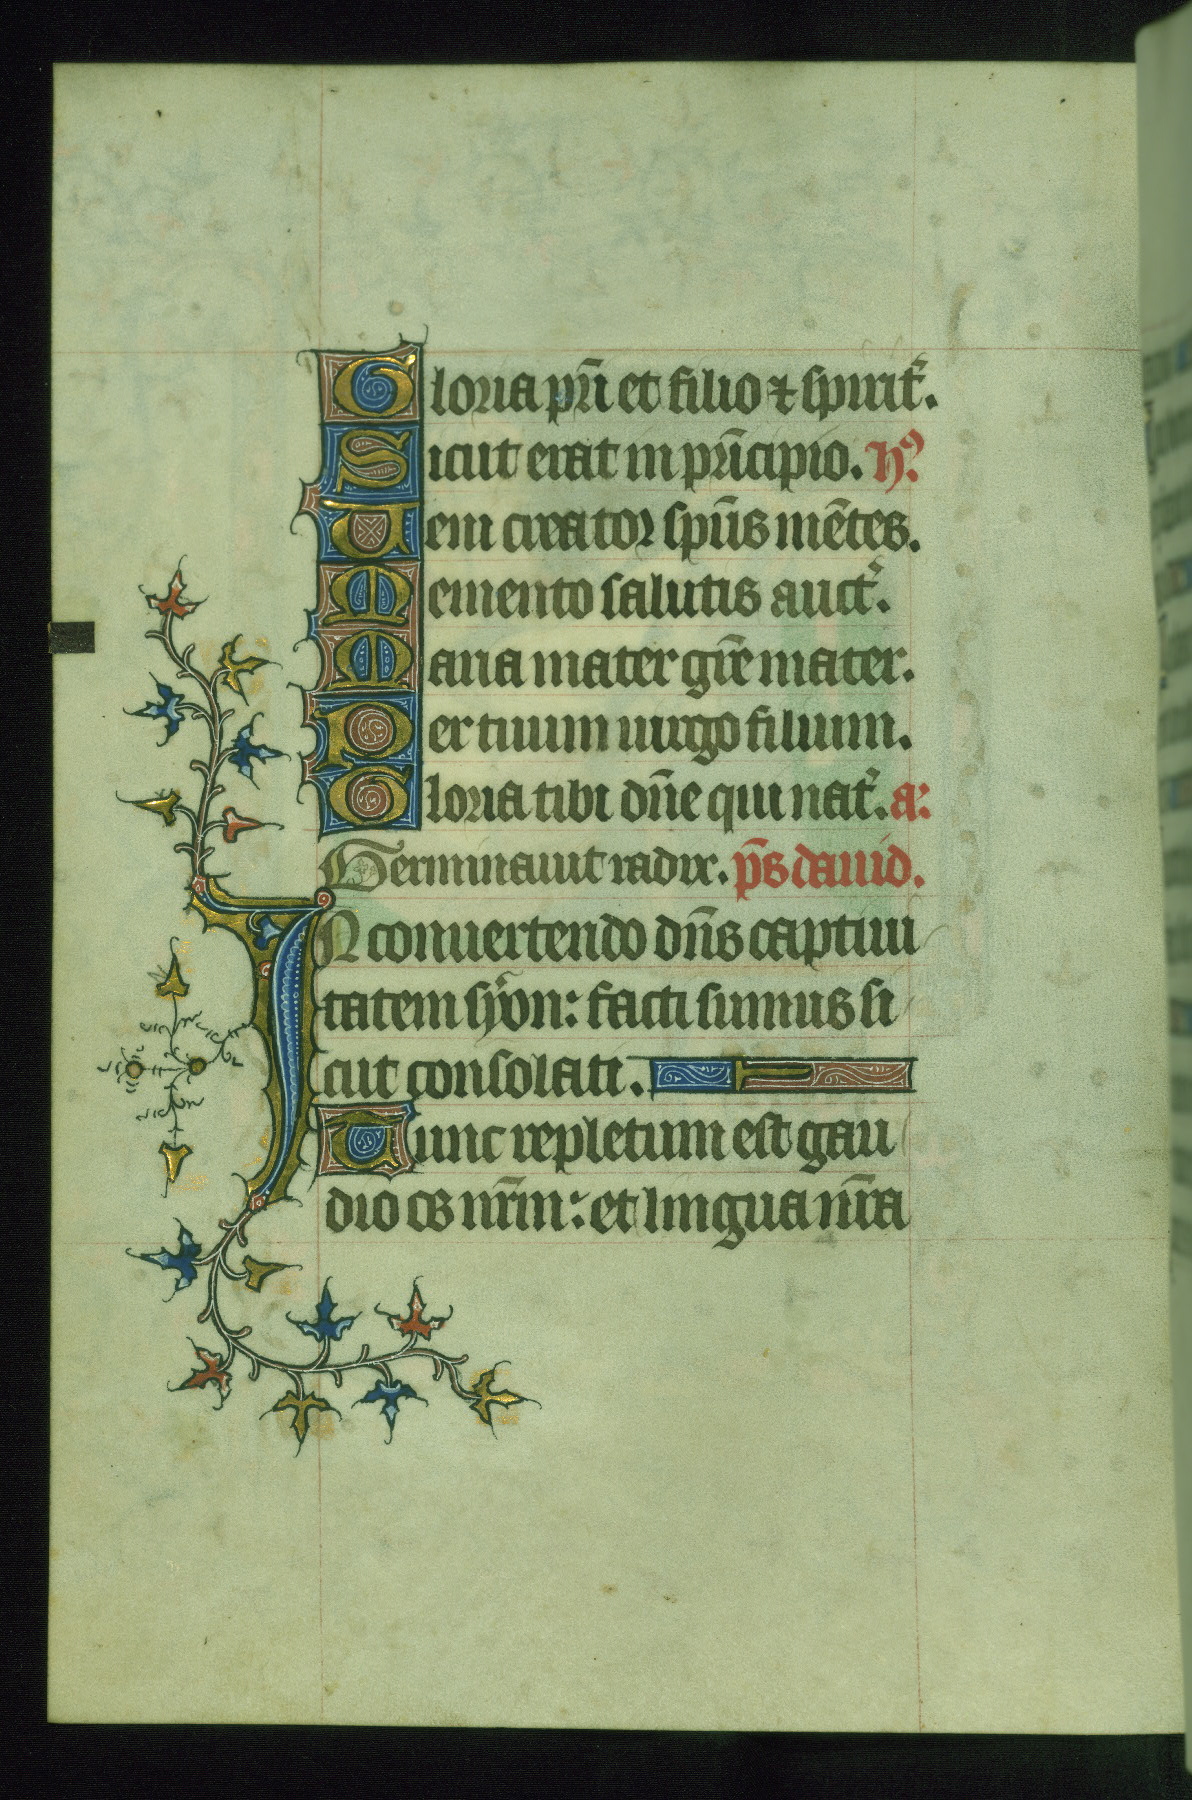 Gloria pr̄i et filio ⁊ spirit᷒.
Sicut erat in pr̄icipio. hꝯ
Ueni creator sp̄us mētes.
Memento salutis auct᷒.
Maria mater gr̄e mater.
Per tuum uirgo filium.
Gloria tibi dn̄e qui nat᷒. a:
Germinauit radix. p̄s dauid.
IN conuertendo dn̄s captiui
tatem syon: facti sumus si
cut consolati.
Tunc repletum est gau
dio os nr̄m: et lingua nr̄a